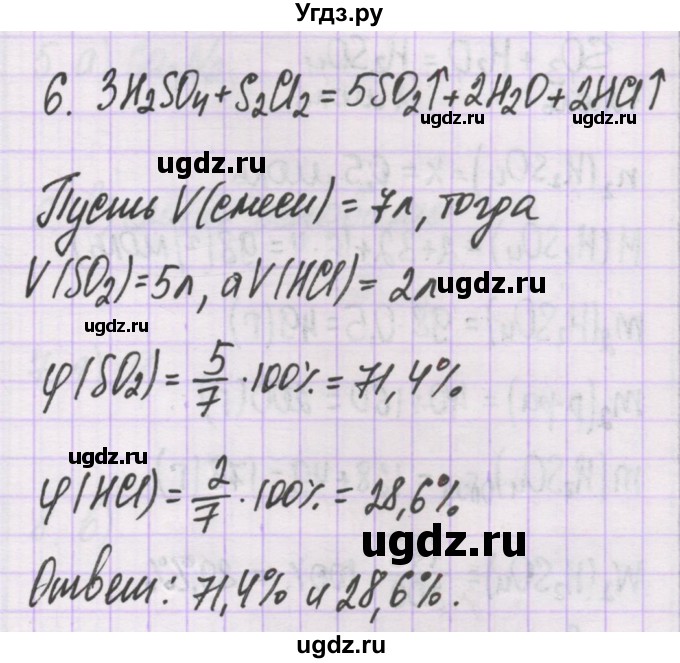 Угдз.ру
6. 3H₂SO₄ + S₂Cl₂ = 5SO₂↑ + 2H₂O + 2HCl↑
ugdz.ru ugdz.ru
ugdz.ru
Пусть V(смеси) = 7л, тогда
V(SO₂) = 5л, а V(HCl) = 2л
ugdz.ru
ugdz.ru
φ(SO₂) = 5/7 · 100% = 71,4%
ugdz.ru
φ(HCl) = 2/7 · 100% = 28,6%
ugdz.ru
Ответ: 71,4% и 28,6%.
ugdz.ru
ugdz.ru